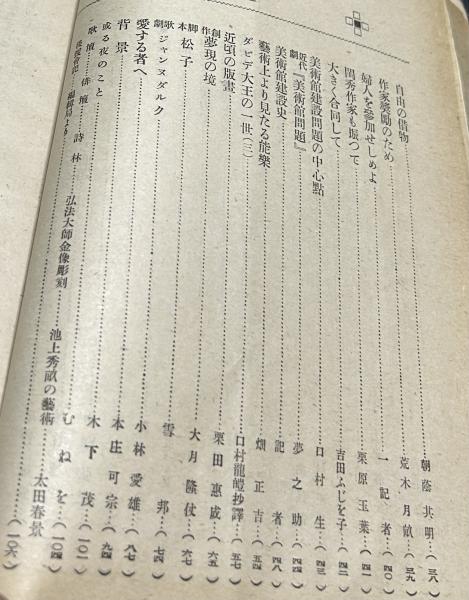 自由の借物……朝蔭其明…(三八)
作家奬勵のため……荒木月畝…(三九)
婦人を參加せしめよ……一記者…(四〇)
閨秀作家も振つて……栗原玉葉…(四一)
大きく合同して……吉田ふじを子…(四二)
美術館建設問題の中心點……口村生…(四三)
近代劇『美術館問題』……夢之助…(四四)
美術館建設史……記者…(四八)
藝術上より見たる能樂……畑正吉…(五四)
ダビデ大王の一世(三)……口村龍皚抄譯…(五七)
近頃の版畫……栗田惠成…(六五)
創作夢現の境……大月隆仗…(六七)
脚本松子……雪邦…(七四)
歌劇ジャンヌダルク
愛する者へ……小林愛雄…(八七)
背景……本庄可宗…(九四)
或る夜のこと……木下茂…(一〇二)
歌壇……俳壇 詩林……むねを…(一〇四)
弘法大師金像彫刻……池上秀畝の藝術……太田春景…(一〇六)